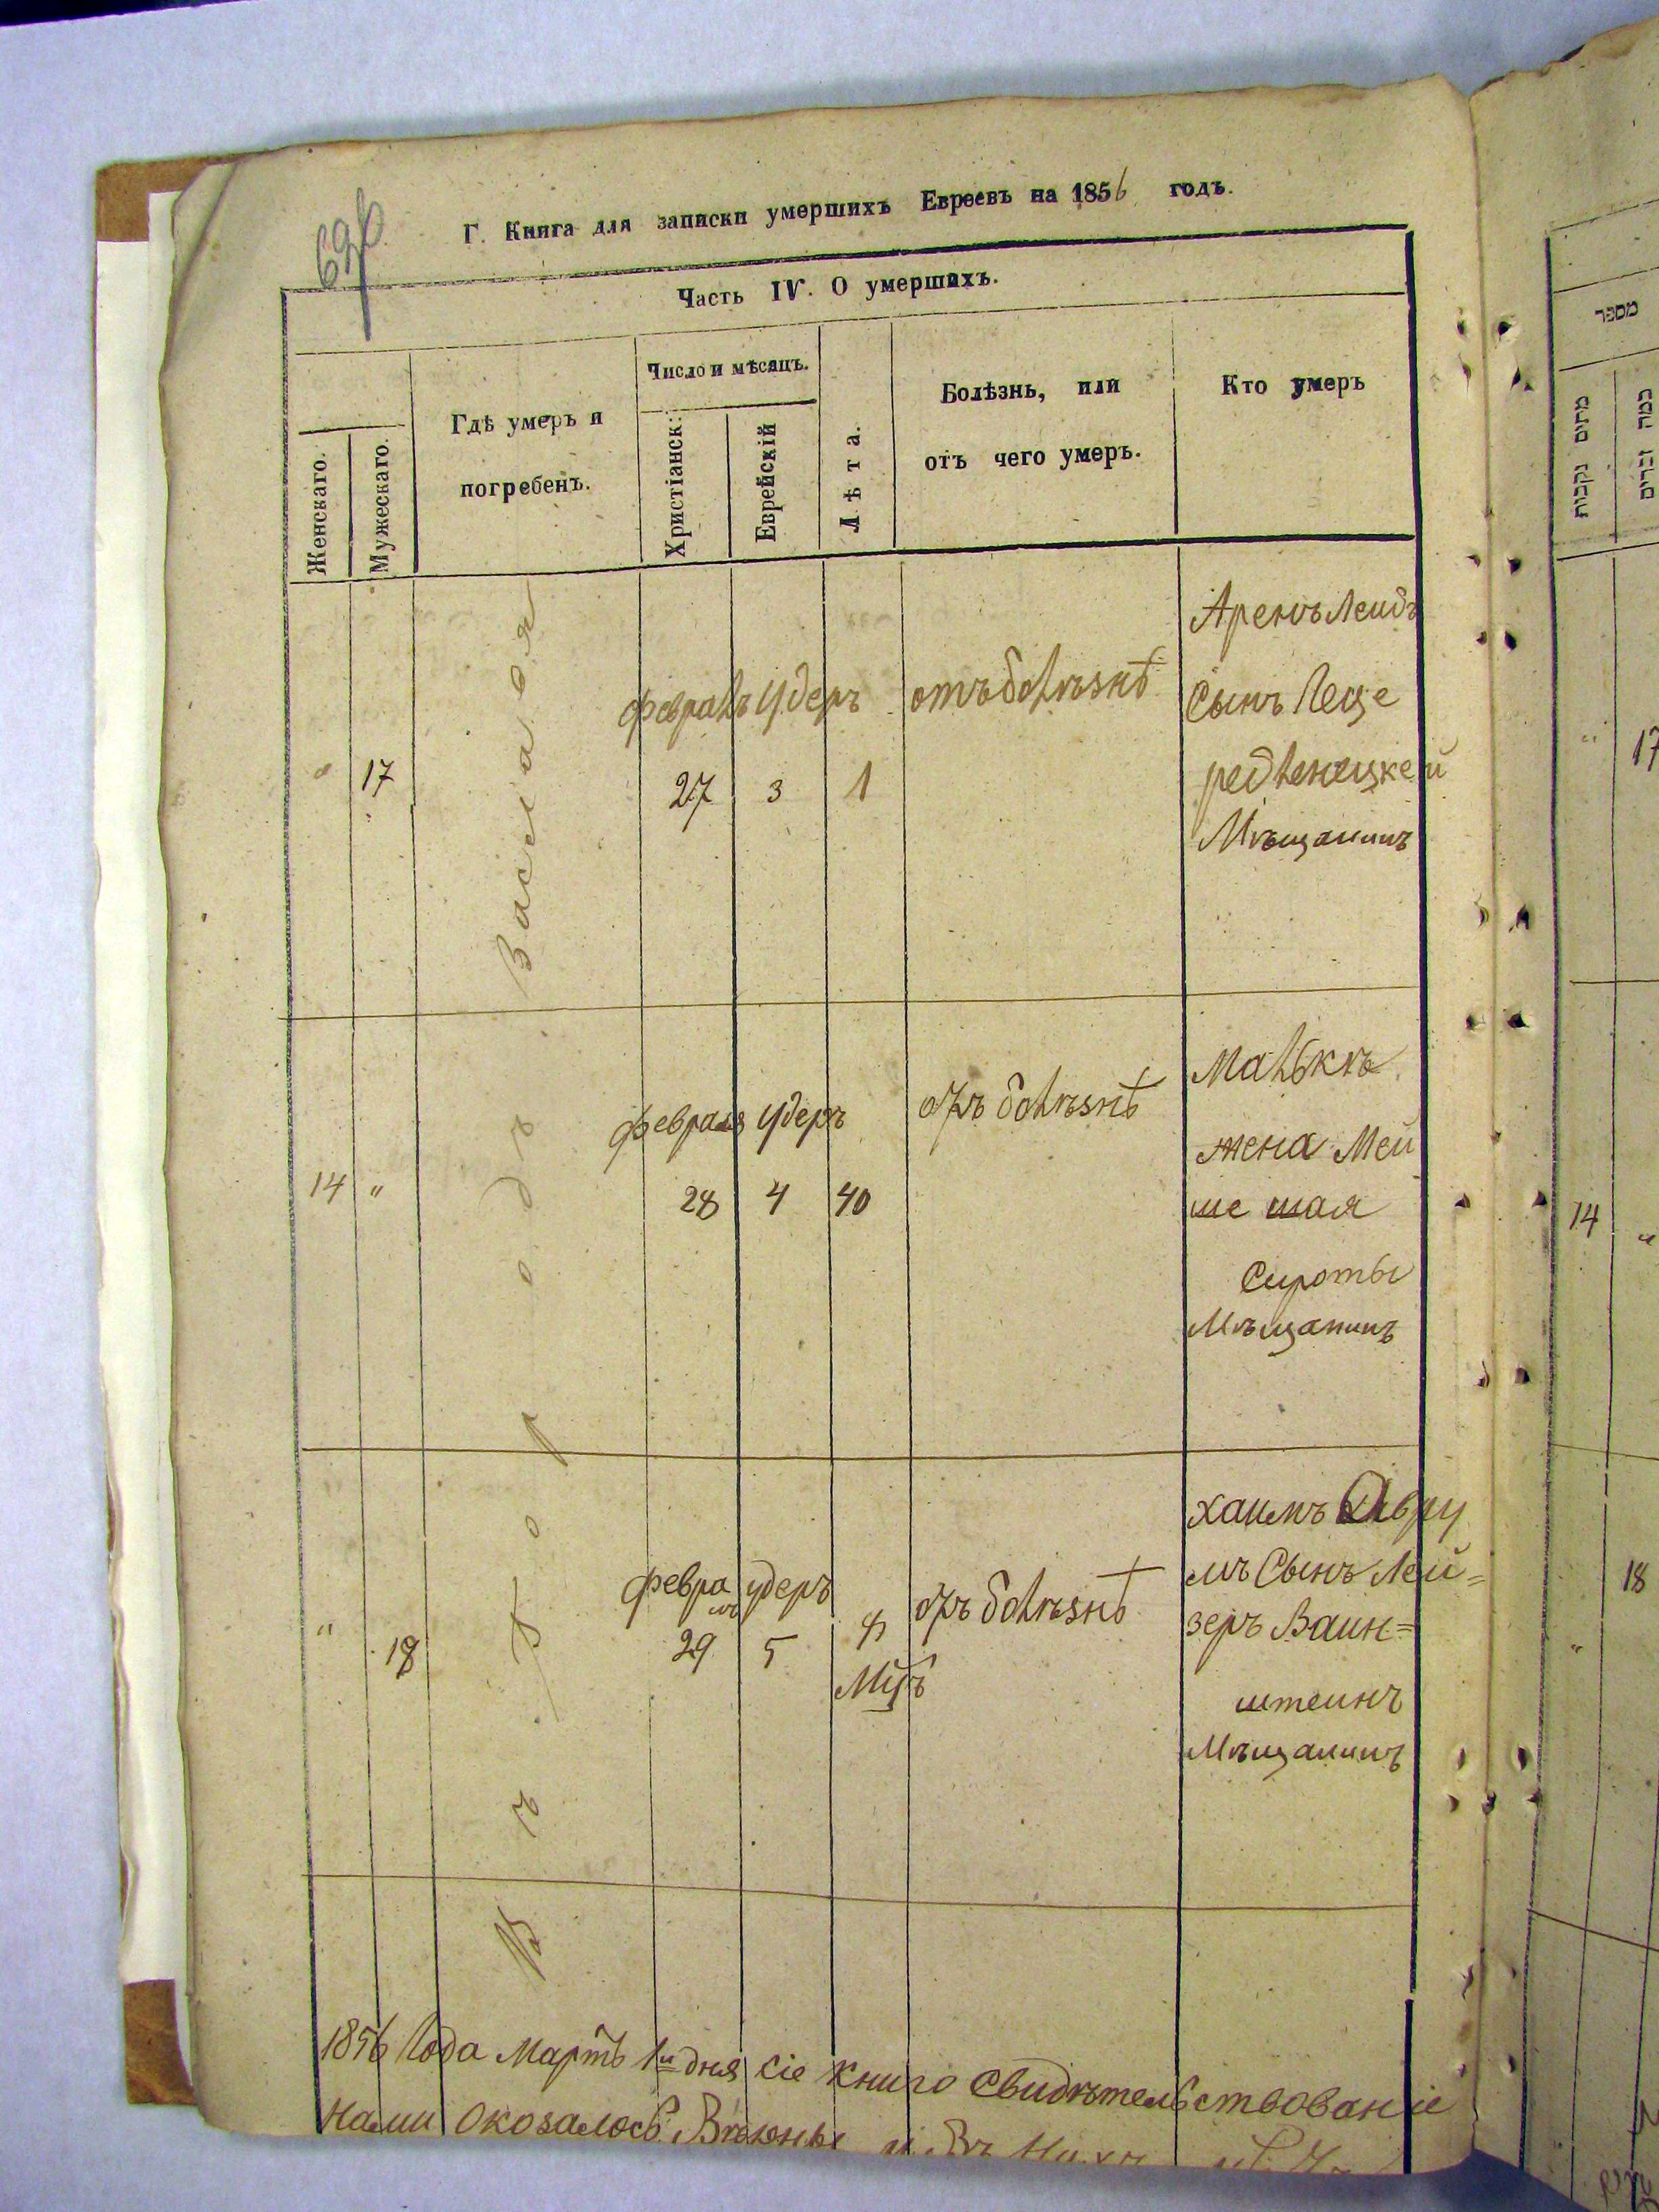 Г. Книга для записки умершихъ Евреевъ на 1856 годъ.
Часть IV. О умершихъ.
Женскаго.
Мужескаго.
Гдѣ умеръ и
погребенъ.
Число и мѣсяцъ.
Христіанск:
Еврейскій
Лѣта.
Болѣзнь, или
отъ чего умеръ.
Кто умеръ
17
февраль Удеръ
27 3 1
отъ болѣзнѣ
Аренъ Леидъ
Сынъ
Мѣщанинъ
14 "
февраля Удеръ
28 4 40
отъ болѣзнѣ
Малькѣ
жена Мей
ше шая
Сироты
Мѣщанинъ
" 18
февра удеръ
ль
29 5
отъ болѣзнѣ
хаимъ Авру
мъ Сынъ Лей=
зеръ Ваин=
штеинъ
Мѣщанинъ
Въ Городѣ
1856 Года Мартъ 1го дня сіе книго свидѣтельствованіе
Нами Оказалось
מספר
מתים נקבות
כמה זכרים
17
14 "
" 18